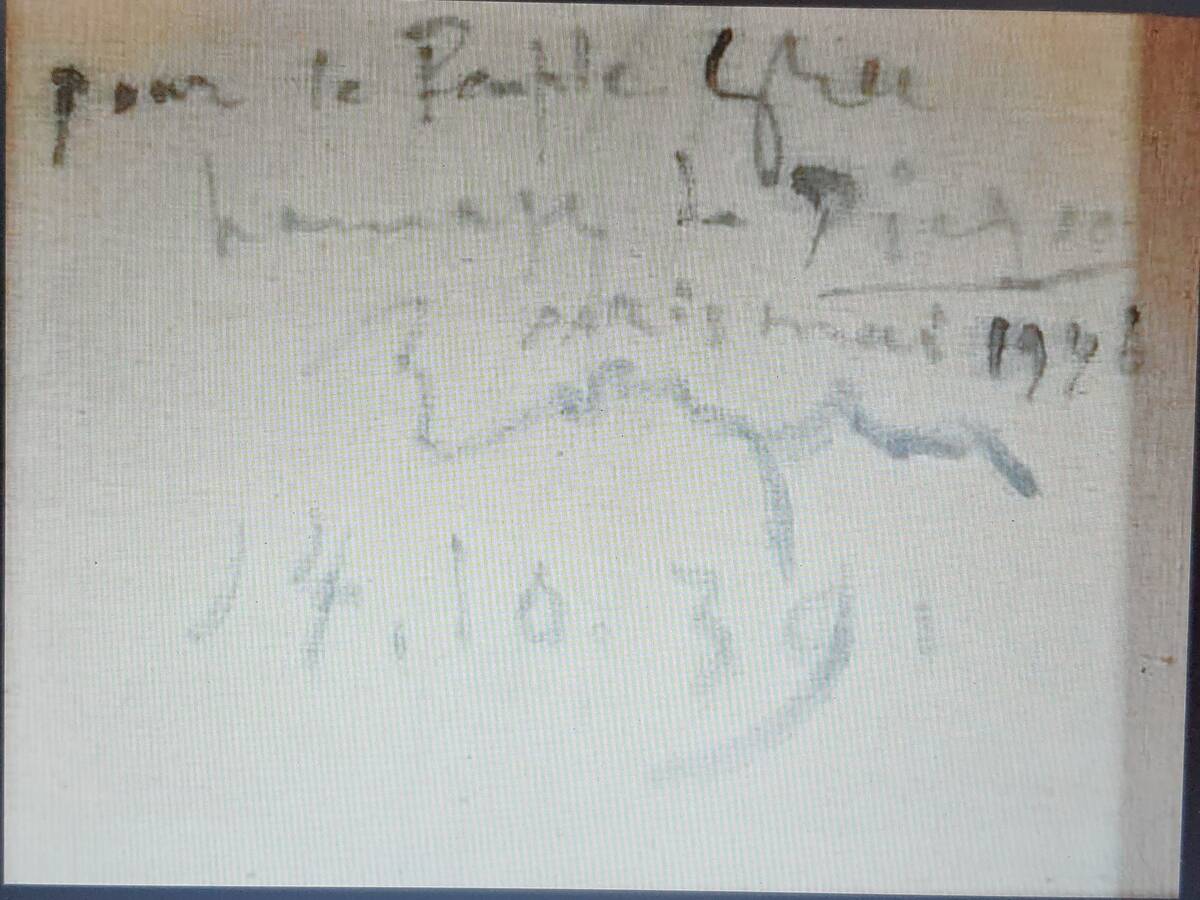 pour le Peuple Grec
hommage de Picasso
paris mai 1946
14.10.39.